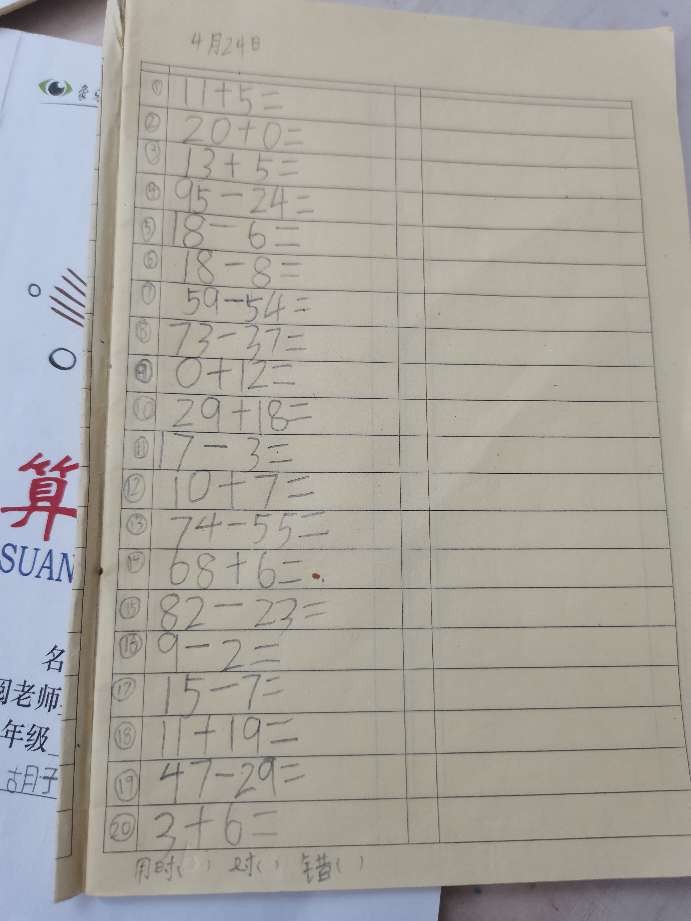 4月24日
① 11+5=
② 20+0=
③ 13+5=
④ 95-24=
⑤ 18-6=
⑥ 18-8=
⑦ 59-54=
⑧ 73-37=
⑨ 0+12=
⑩ 29+18=
⑪ 17-3=
⑫ 10+7=
⑬ 74-55=
⑭ 68+6=
⑮ 82-23=
⑯ 9-2=
⑰ 15-7=
⑱ 11+19=
⑲ 47-29=
⑳ 3+6=
用时( ) 对( ) 错( )
算
SUAN
名
老师
年级